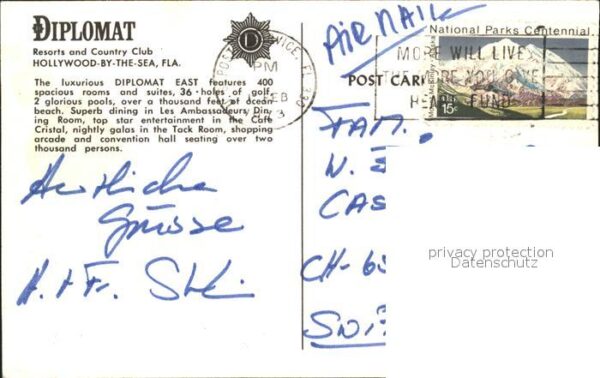 DIPLOMAT
Resorts and Country Club
HOLLYWOOD-BY-THE-SEA, FLA.
The luxurious DIPLOMAT EAST features 400
spacious rooms and suites, 36 holes of golf,
2 glorious pools, over a thousand feet of ocean
beach. Superb dining in Les Ambassadeurs Din-
ing Room, top star entertainment in the Café
Cristal, nightly galas in the Tack Room, shopping
arcade and convention hall seating over two
thousand persons.
D
PM
FEB
AIR MAIL
National Parks Centennial
MORE WILL LIVE
THE MORE YOU GIVE
HEART FUND
15c
POST CARD
Herzliche
Grüsse
FAM.
CAS
CH-6
privacy protection
Datenschutz